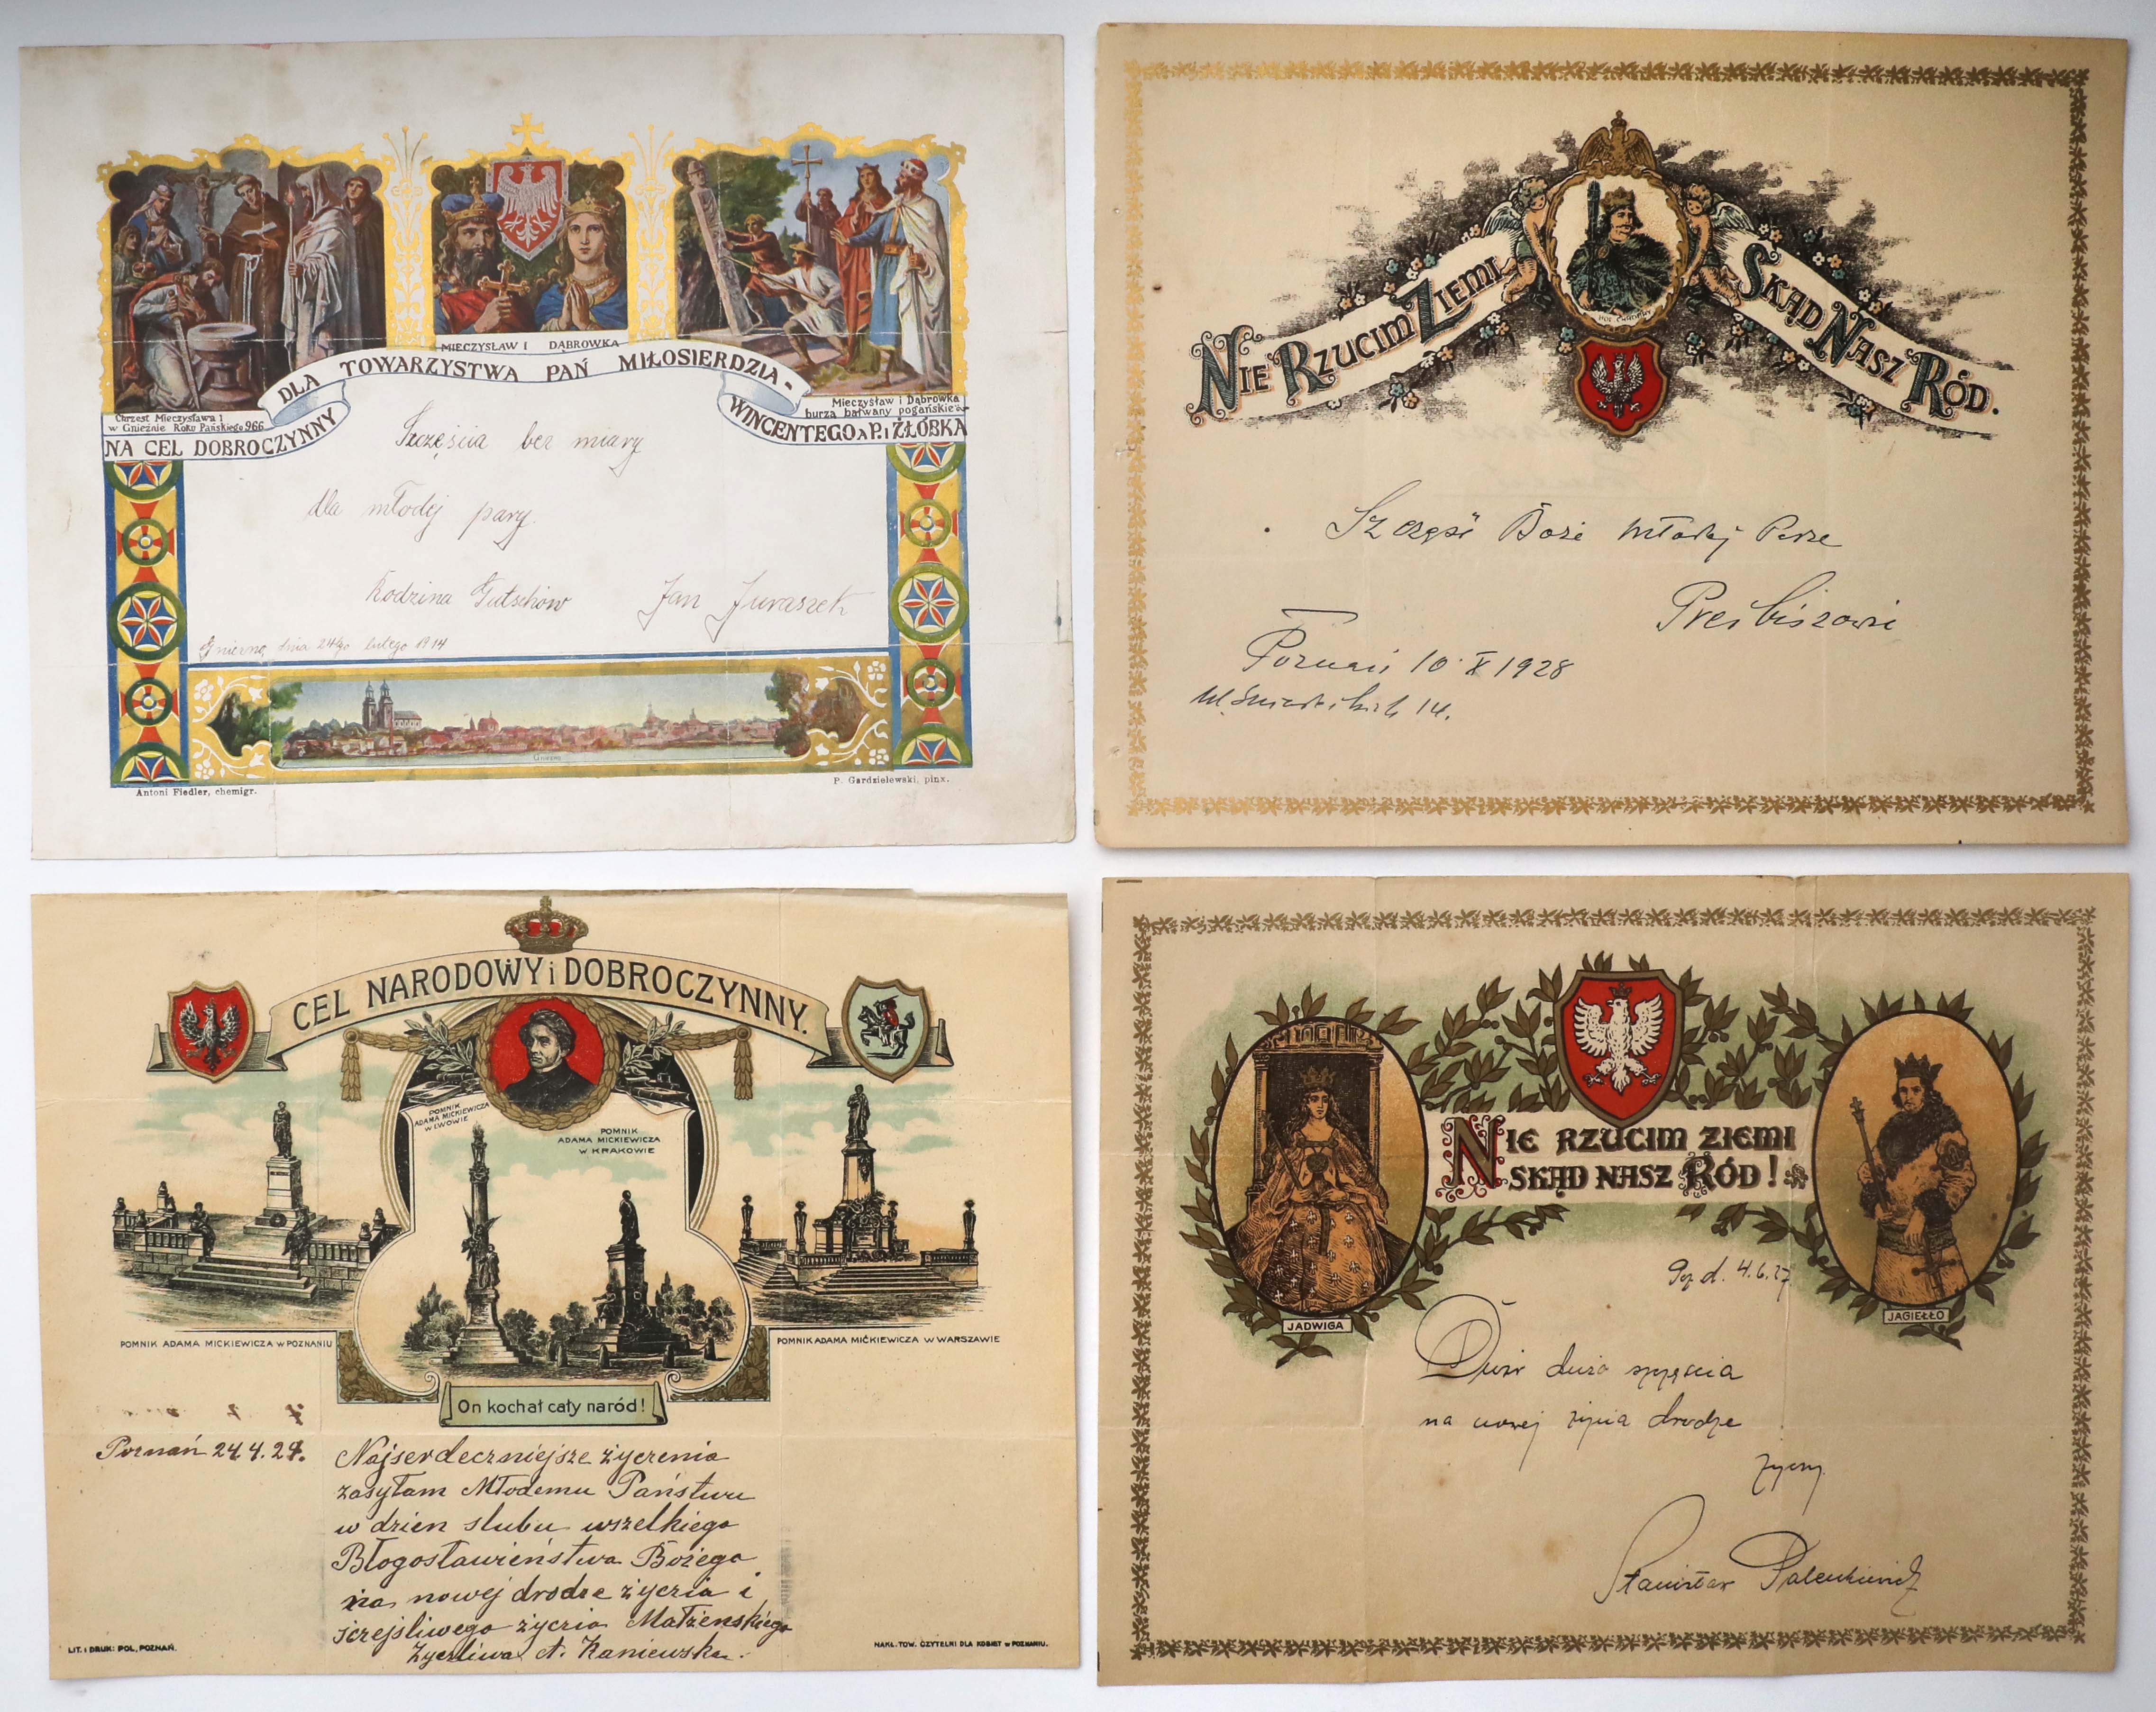 MIECZYSŁAW I DĄBROWKA
DLA TOWARZYSTWA PAŃ MIŁOSIERDZIA-
WINCENTEGO A P. I ŻŁÓBKA
Chrzest Mieczysława I
w Gnieźnie Roku Pańskiego 966
NA CEL DOBROCZYNNY
Mieczysław i Dąbrowka
burzą bałwany pogańskie
Szczęścia bez miary
dla młodej pary.
Rodzina Gutschów Jan Juraszek
Gniezno, dnia 24go lutego 1914
Gniezno
Antoni Fiedler, chemigr.
P. Gardzielewski, pinx.
NIE RZUCIM ZIEMI
SKĄD NASZ RÓD.
Szczęść Boże Młodej Parze
Poznań 10 X 1928
14.
CEL NARODOWY i DOBROCZYNNY.
POMNIK
ADAMA MICKIEWICZA
W LWOWIE
POMNIK
ADAMA MICKIEWICZA
W KRAKOWIE
POMNIK ADAMA MICKIEWICZA W POZNANIU
POMNIK ADAMA MICKIEWICZA W WARSZAWIE
On kochał cały naród!
Poznań 24.4.27.
Najserdeczniejsze życzenia
zasyłam Młodemu Państwu
w dzien slubu wszelkiego
Błogosławieństwa Bożego
na nowej drodze życzia i
sczejśliwego życzia Małżenskiego
Życzliwa A. Kaniewska.
LIT. I DRUK: POL, POZNAŃ.
NAKŁ. TOW. CZYTELNI DLA KOBIET W POZNANIU.
NIE RZUCIM ZIEMI
SKĄD NASZ RÓD!
JADWIGA
JAGIEŁŁO
d. 4.6.27
dużo szczęścia
na nowej życia drodze
życzy
Stanisław